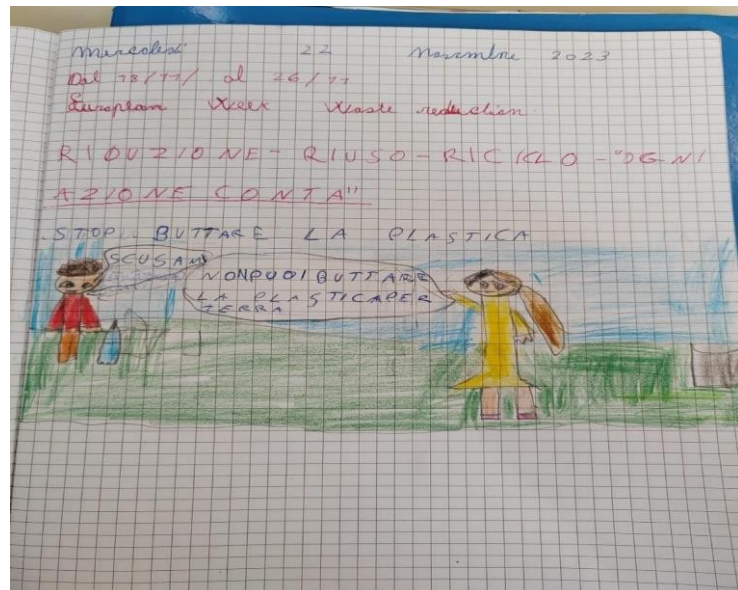 mercoledì 22 novembre 2023
Dal 18/11/ al 26/11
European Week Waste reduction
RIDUZIONE - RIUSO - RICICLO - "OGNI
AZIONE CONTA"
STOP BUTTARE LA PLASTICA
SCUSAMI
NON PUOI BUTTARE
LA PLASTICA PER
TERRA